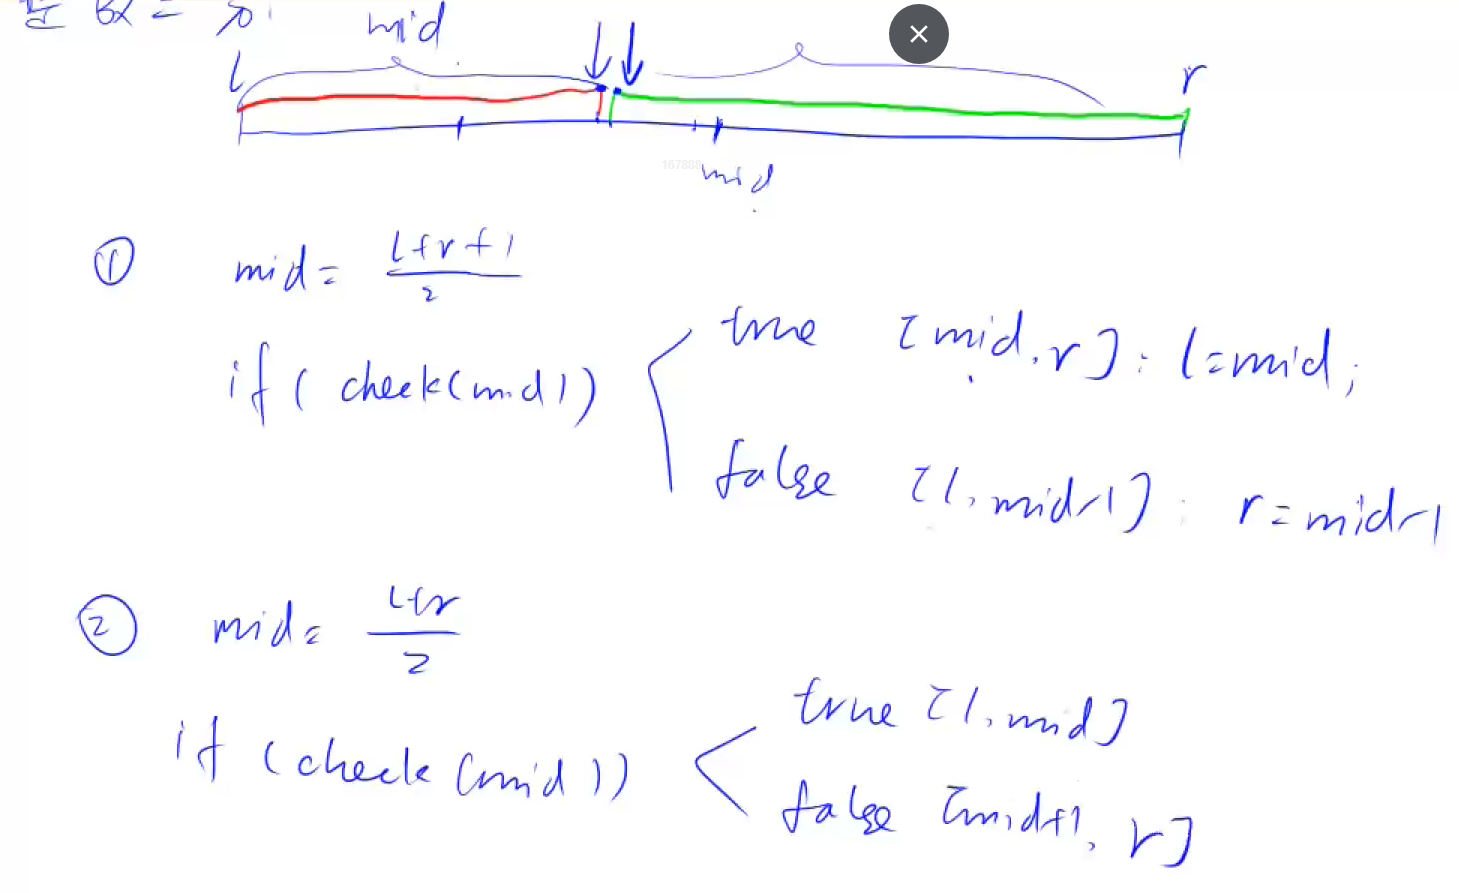 mid
l
r
mid
① mid = (l+r+1)/2
if ( check(mid))
true [mid, r] : l=mid;
false [l, mid-1] : r=mid-1
② mid = (l+r)/2
if (check (mid))
true [l, mid]
false [mid+1, r]